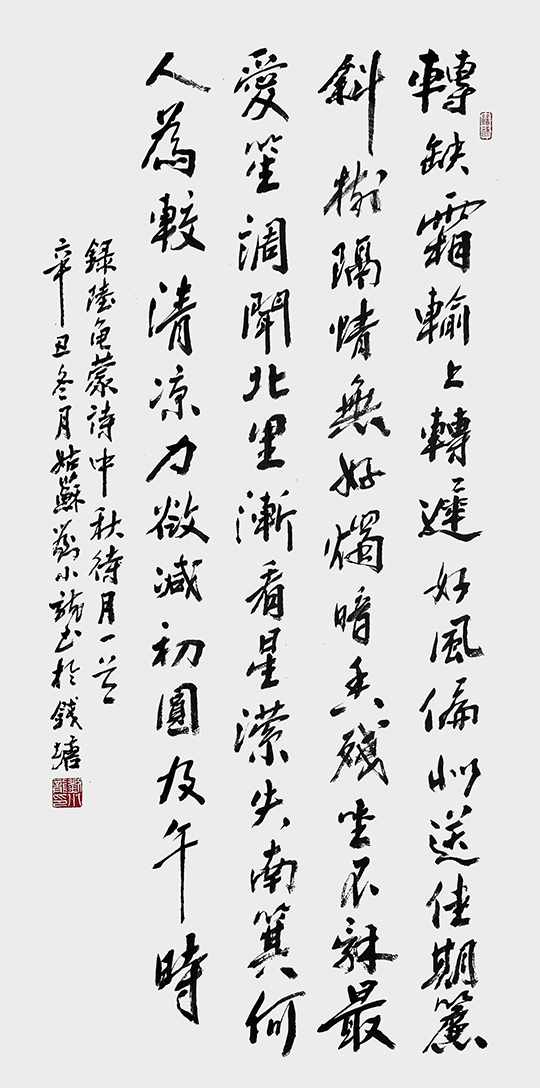 轉缺霜輸上轉遲好風偏似送佳期簾
斜樹隔情無好燭暗香殘坐不辭最
愛笙調聞北里漸看星濚失南箕何
人為較清凉力欲減初圓及午時
錄陸龜蒙詩中秋待月一首
辛丑冬月姑蘇劉小龍書於錢塘